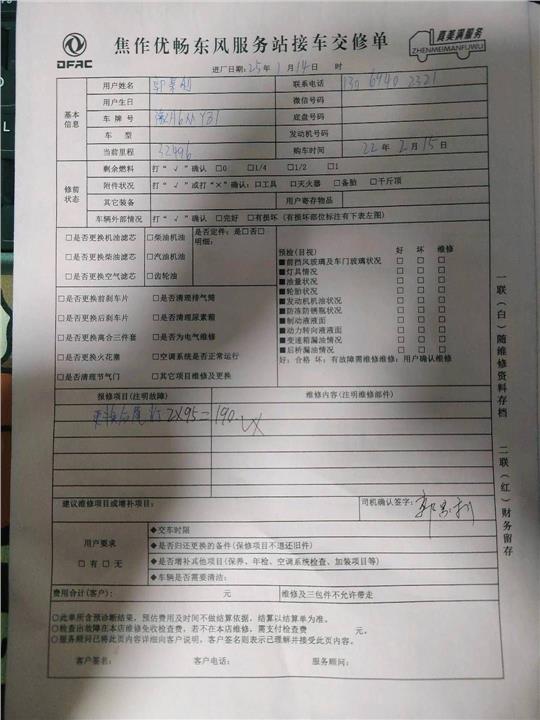 DFAC
焦作优畅东风服务站接车交修单
真美满服务
ZHENMEIMANFUWU
进厂日期:25年1月14日 时
基本信息
用户姓名 联系电话 130 6940 2321
用户生日 微信号码
车牌号 底盘号码
车型 发动机号码
当前里程 32496 购车时间 22年2月15日
修前状态
剩余燃料 打“√”确认 □0 □1/4 □1/2 □1
附件状况 打“√”或打“×”确认:□工具 □灭火器 □备胎 □千斤顶
其它装备 用户寄存物品
车辆外部情况 打“√”确认 □完好 □有损坏(有损坏部位标注有下表左图)
□是否更换机油滤芯 □柴油机油 是否定件:是□否□
明细:
□是否更换柴油滤芯 □汽油机油
□是否更换空气滤芯 □齿轮油
预检(目视) 好 坏 维修
■前挡风玻璃及车门玻璃状况 □ □ □
■灯具情况 □ □ □
■油量状况 □ □ □
■轮胎状况 □ □ □
■发动机机油状况 □ □ □
■防冻防锈瓶状况 □ □ □
■制动液液面 □ □ □
■动力转向液液面 □ □ □
■变速箱漏油情况 □ □ □
■后桥漏油情况 □ □ □
好:合格 坏:有故障需维修维修:用户确认维修
□是否更换前刹车片 □是否清理排气筒
□是否更换后刹车片 □是否清理尿素箱
□是否更换离合三件套 □是否为电气维修
□是否更换火花塞 □空调系统是否正常运行
□是否清理节气门 □其它项目维修及更换
报修项目(注明故障) 维修内容(注明维修部件)
更换后尾灯 2X95=190.
建议维修项目或增补项目: 司机确认签字:
用户要求
□有□无
◆交车时限
◆是否归还更换的备件(保修项目不退还旧件)
◆是否增补其他项目(保养、年检、空调系统检查、加装项目等)
◆车辆是否需要清洁:
费用合计(客户): 元 维修及三包件不允许带走
○此单所含预诊断结果,预估费用及时间不做结算依据,结算以结算单为准。
○检查出故障在本店维修免收检查费,若不在本店维修,需支付检查费 元。
○服务顾问已将此页内容详细向客户说明,客户签名则表示已理解并接受此页内容。
客户签名: 客户电话: 服务顾问:
一联(白)随维修资料存档
二联(红)财务留存